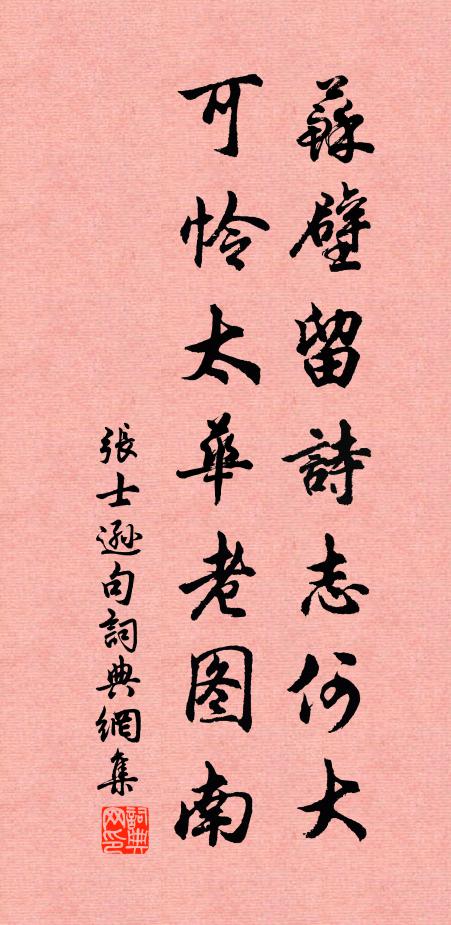 蘇壁留詩志何大
可怜太華老图南
張士遜句詞典網集
詞典网印